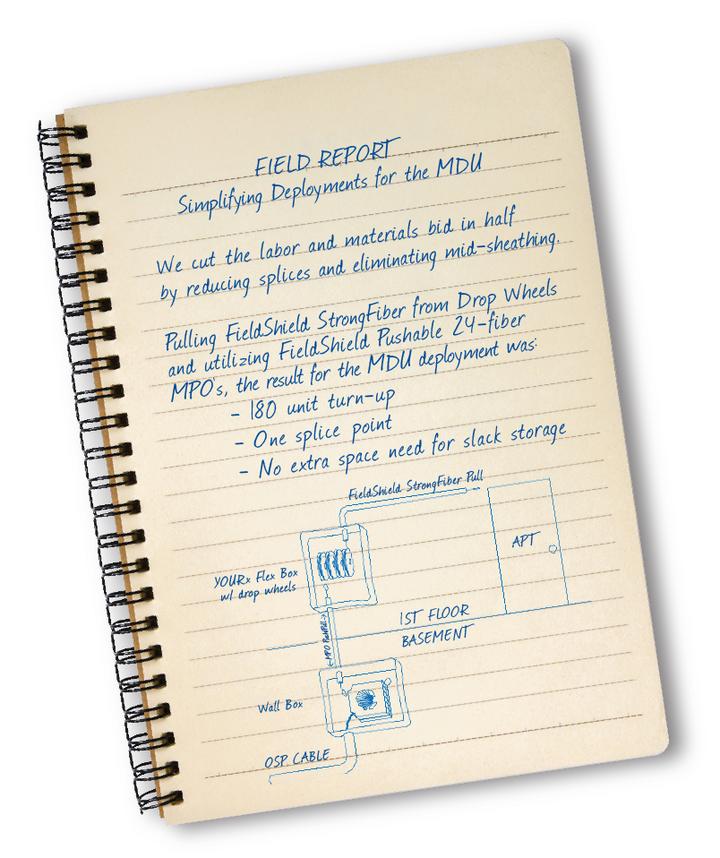 FIELD REPORT
Simplifying Deployments for the MDU
We cut the labor and materials bid in half
by reducing splices and eliminating mid-sheathing.
Pulling FieldShield StrongFiber from Drop Wheels
and utilizing FieldShield Pushable 24-fiber
MPO's, the result for the MDU deployment was:
- 180 unit turn-up
- One splice point
- No extra space need for slack storage
FieldShield StrongFiber Pull
APT
YOURx Flex Box
w/ drop wheels
1ST FLOOR
BASEMENT
Wall Box
OSP CABLE